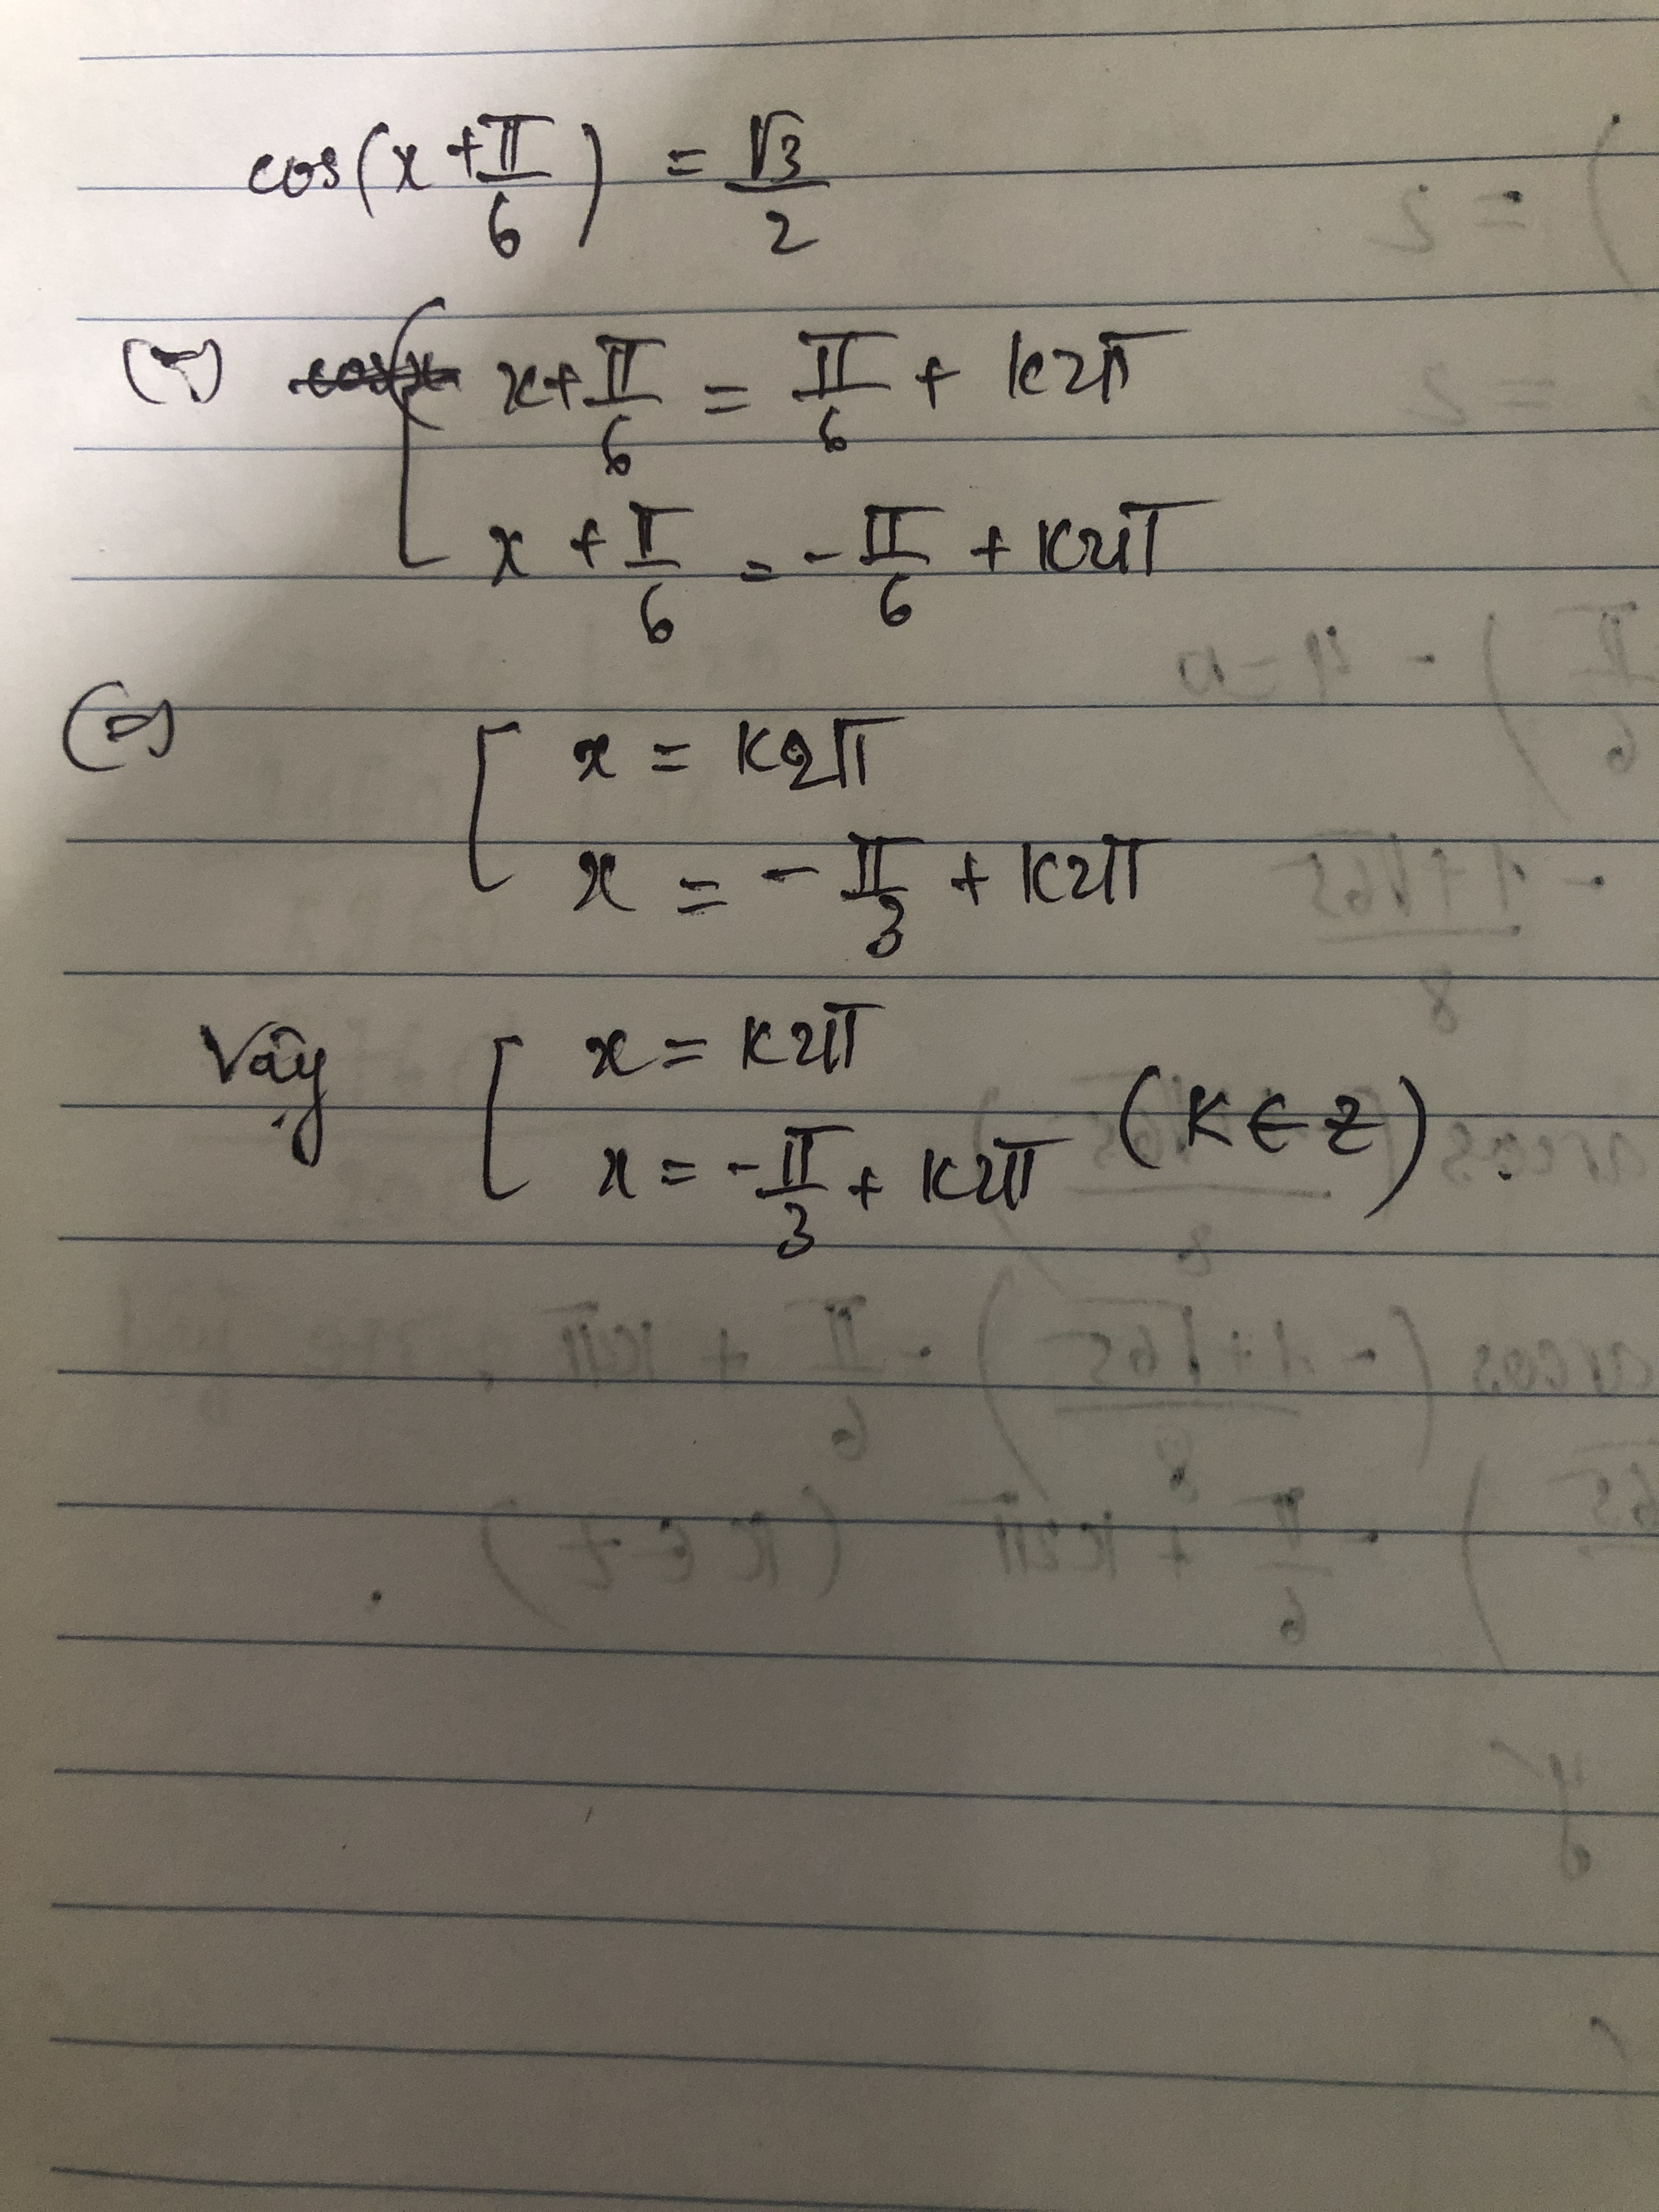 cos(x + π/6) = √3/2
(=) [ x + π/6 = π/6 + k2π
x + π/6 = -π/6 + k2π
(=) [ x = k2π
x = -π/3 + k2π
Vậy [ x = k2π
x = -π/3 + k2π (k ∈ Z).